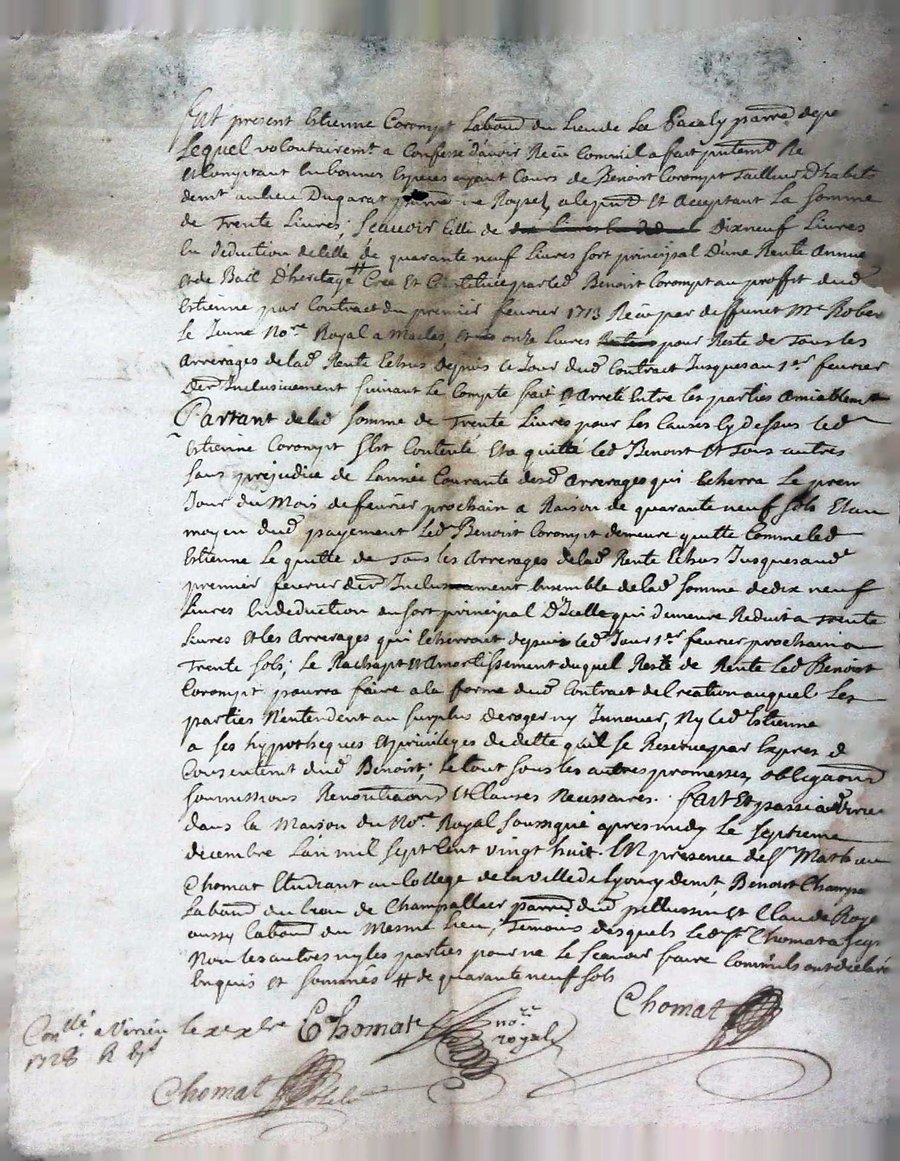 fut present Estienne Corompt Labour du Lieu de La Bacaly parre de pe
Lequel volontairemt a Confessé d'avoir Reçu Comme il a fait pntemt Re
et Comptant en bonnes Espèces ayant Cours de Benoist Corompt tailleur D'habits
demt au lieu Dugarat parre ne Roysey, a le pnt Et aceptant La Somme
de Trente Livres, Scavoir Celle de Dixneuf Livres
En Deduction de celle de quarante neuf Livres sort principal D'une Rente Annue
et de Bail D'heritage # Créé Et Constituée par led Benoist Corompt au proffit dud
Estienne par Contract du premier fevrier 1713 Reçu par deffunct Me Rober
Le Jeune Nore Royal a Maclas, et onze Livres pour Reste de Tous les
Arrerages de lad Rente Echus depuis le Jour dud Contract Jusques au 1er fevrier
Der Inclusivement suivant le Compte fait Et Arreté Entre les parties amiablemt
Partant de lad somme de Trente Livres pour Les Causes Cy dessus led
Estienne Corompt s'Est Contenté Et a quitté led Benoist Et Tous autres
sans prejudice de L'année Courante desd arrerages qui Echerra Le prem
Jour du Mois de fevrier prochain a Raison de quarante neuf sols Et au
moyen dud payement Led Benoist Corompt demeure quitte Comme led
Estienne Le quitte de Tous les Arrerages de lad Rente Echus Jusques aud
premier fevrier der Inclusivement Ensemble de lad somme de dix neuf
Livres En deduction du sort principal D'Icelle qui demeure Reduit a trente
Livres et les Arrerages qui Echerront depuis led Jour 1er fevrier prochain a
Trente sols; Le Rachapt et Amortissement duquel Reste de Rente Led Benoist
Corompt pourra faire a la forme dud Contract de Creation auquel Les
parties N'entendent au surplus deroger ny Innover, Ny led Estienne
a ses hypotheques Et privileges de dette qu'il se Reserve par Expres d
Consentemt dud Benoist; Le tout sous les autres promesses, obligaons
soumissions Renontiaons Et Clauses Necessaires. fait Et passé a Virieu
dans la Maison du Nore Royal soussigné apres midy Le septieme
decembre L'an mil sept Cent vingt huit. En presence de sr Mathieu
Chomat Etudiant au College de la ville de Lyon y demt, Benoist Champa
Labour du Lieu de Champallier parre dud pellussin Et Claude Roye
aussy Labour du Mesme Lieu, Temoins desquels Led sr Chomat a sign
Non les autres ny les parties pour ne Le Scavoir faire Comm'ils ont déclaré
Enquis et sommés # de quarante neuf sols
Chomat
Conllé a Virieu le Xe Xbre
1728 R
Chomat
nore
royal
Chomat